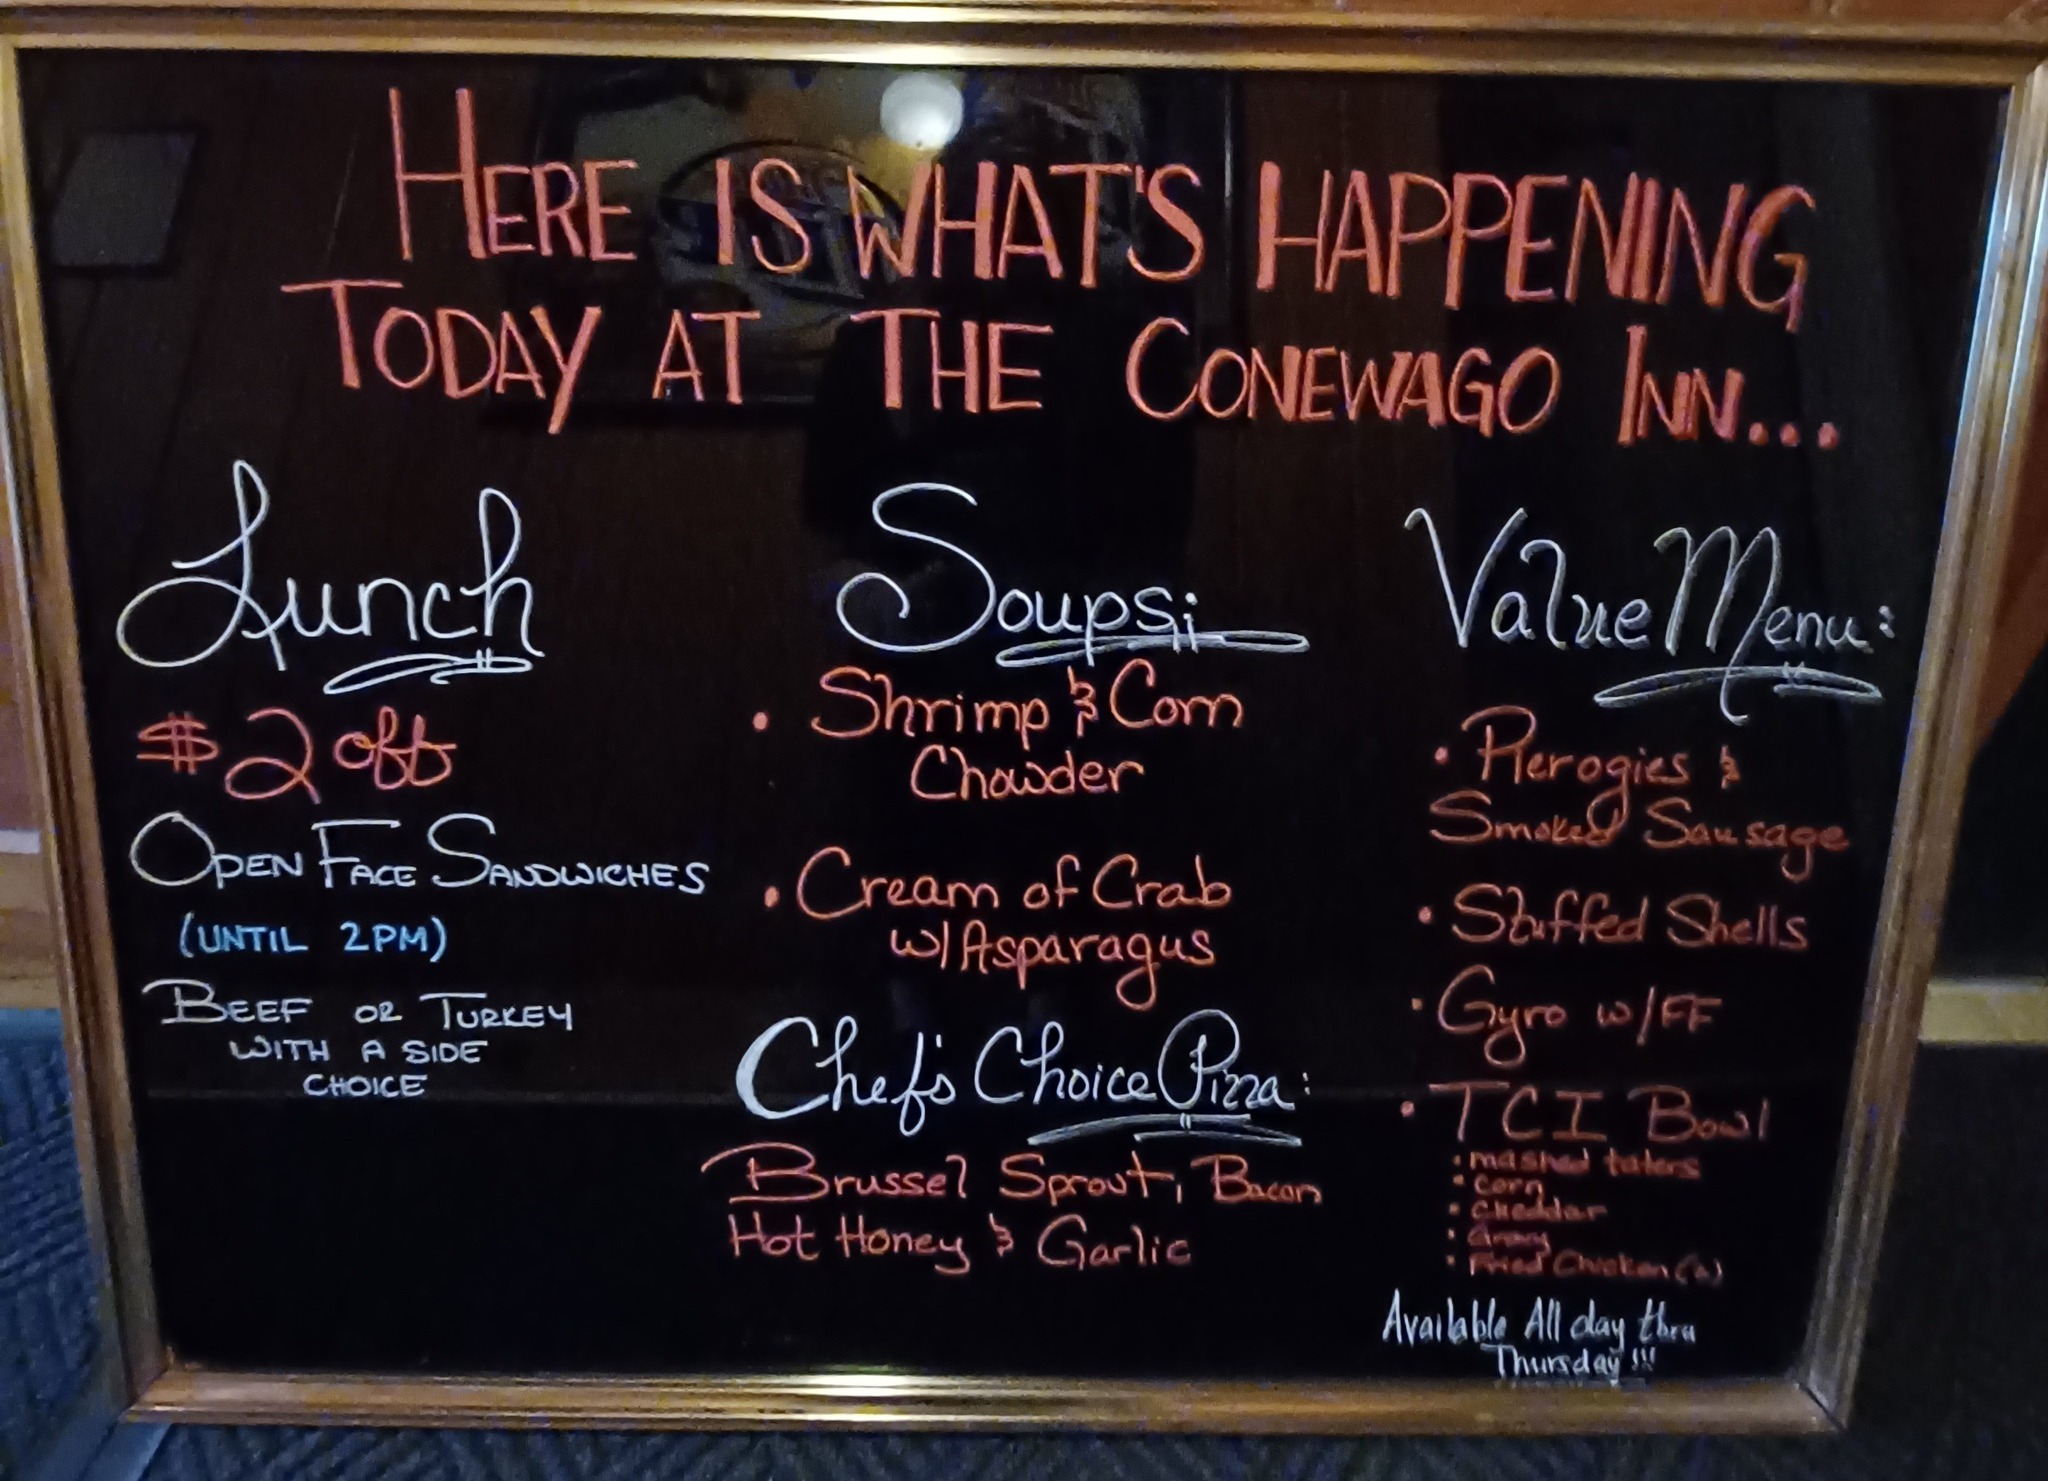 HERE IS WHAT'S HAPPENING
TODAY AT THE CONEWAGO INN...
Lunch
$2 off
OPEN FACE SANDWICHES
(UNTIL 2PM)
BEEF OR TURKEY
WITH A SIDE
CHOICE
Soups;
• Shrimp & Corn
Chowder
• Cream of Crab
w/ Asparagus
Chef's Choice Pizza:
Brussel Sprout, Bacon
Hot Honey & Garlic
Value Menu:
• Pierogies &
Smoked Sausage
• Stuffed Shells
• Gyro w/FF
• TCI Bowl
• mashed taters
• corn
• cheddar
• Gravy
• Fried Chicken
Available All day thru
Thursday!!!